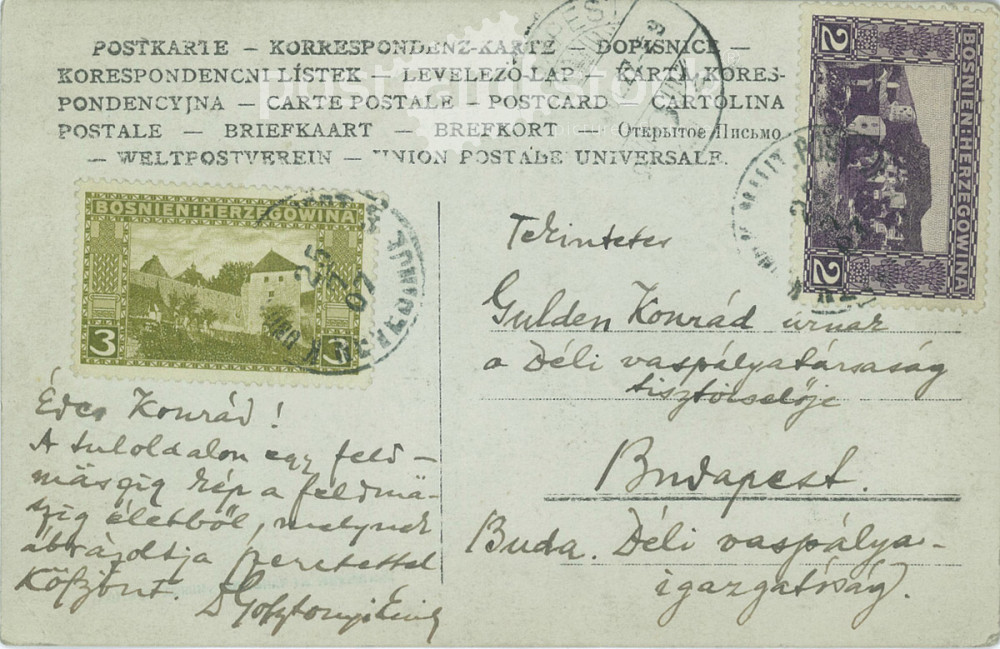 POSTKARTE – KORRESPONDENZ-KARTE – DOPISNICE –
KORESPONDENCNI LÍSTEK – LEVELEZŐ-LAP – KARTA KORES-
PONDENCYJNA – CARTE POSTALE – POSTCARD – CARTOLINA
POSTALE – BRIEFKAART – BREFKORT – Открытое Письмо
– WELTPOSTVEREIN – UNION POSTALE UNIVERSALE.
BOSNIEN:HERZEGOWINA
2 2
BOSNIEN:HERZEGOWINA
3 3
07
Tekintetes
Gulden Konrád úrnak
a Déli vaspályatársaság
tisztviselője
Budapest.
Buda. Déli vaspálya-
igazgatóság.
Édes Konrád!
A tuloldalon egy feld-
mäsgig kép a feldmä-
szig életből, melynek
ábrázoltja szeretettel
Köszönt.